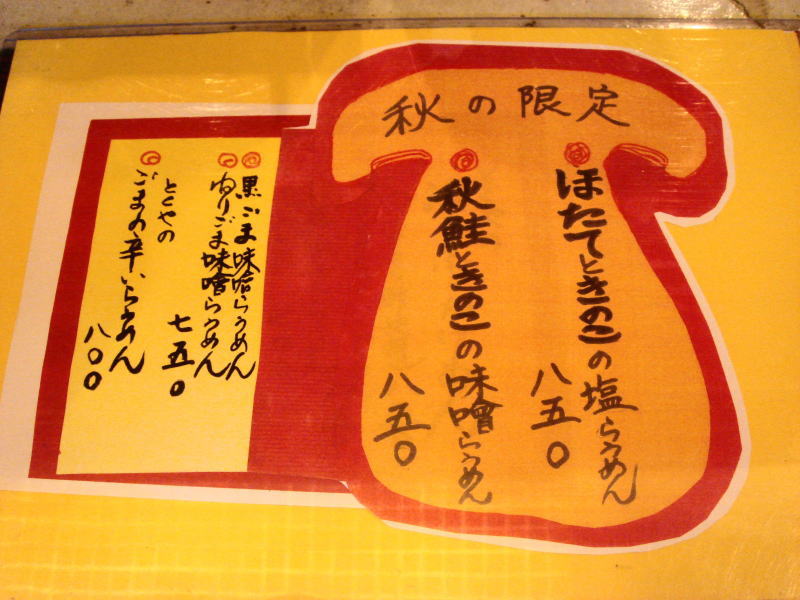 秋の限定
ほたてときのこの塩らうめん
八五〇
秋鮭ときのこの味噌らうめん
八五〇
黒ごま味噌らうめん
ねりごま味噌らうめん
七五〇
とくやの
ごまの辛いらうめん
八〇〇